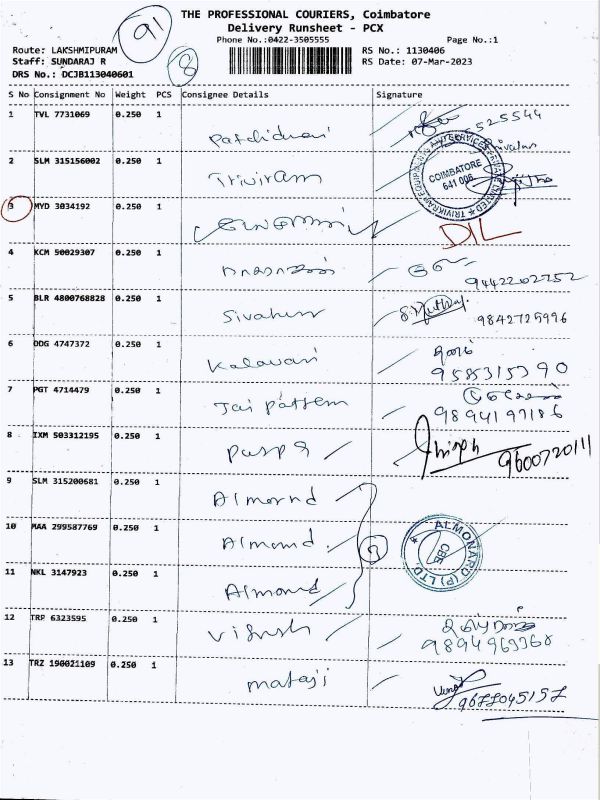 THE PROFESSIONAL COURIERS, Coimbatore
Delivery Runsheet - PCX
Phone No.:0422-3505555 Page No.:1
91
8
Route: LAKSHMIPURAM RS No.: 1130406
Staff: SUNDARAJ R RS Date: 07-Mar-2023
DRS No.: DCJB113040601
S No Consignment No Weight PCS Consignee Details Signature
1 TVL 7731069 0.250 1
2 SLM 315156002 0.250 1 Triviram
COIMBATORE 641 006
3 MYD 3034192 0.250 1 DIL
4 KCM 50029307 0.250 1 9442202752
5 BLR 4800768828 0.250 1 9842725996
6 ODG 4747372 0.250 1 Kalavani 9585315390
7 PGT 4714479 0.250 1 Jai 9894197186
8 IXM 503312195 0.250 1 9600720111
9 SLM 315200681 0.250 1 Almornd
10 MAA 299587769 0.250 1 Almond
ALMONARD (P) LTD. CBE
11 NKL 3147923 0.250 1 Almond
12 TRP 6323595 0.250 1 9894963368
13 TRZ 190021109 0.250 1 mataji 9677045157